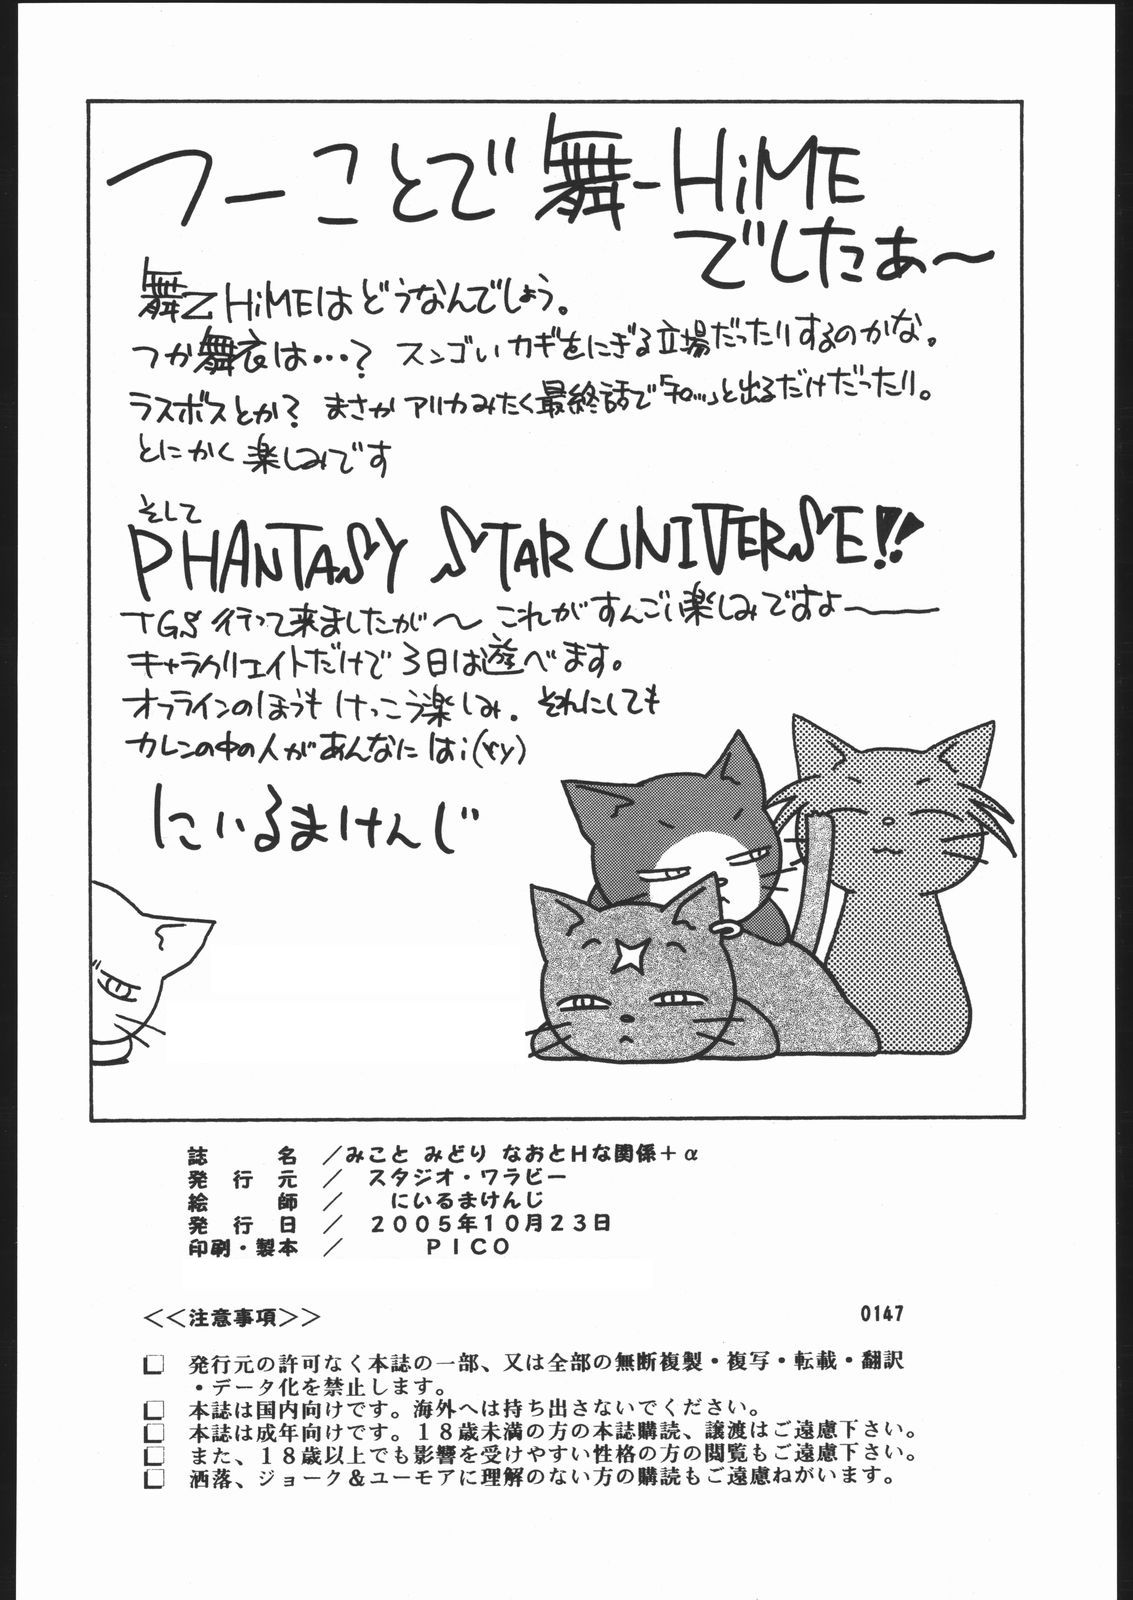 つーことで舞-HiME
でしたぁ〜
舞乙HiMEはどうなんでしょう。
つか舞衣は…？ スンゴいカギをにぎる立場だったりするのかな。
ラスボスとか？ まさかアリカみたく最終話で「チロッ」と出るだけだったり。
とにかく楽しみです
そして
PHANTASY STAR UNIVERSE!!
TGS行って来ましたが〜 これがすんごい楽しみですよ――
キャラクリエイトだけで3日は遊べます。
オフラインのほうもけっこう楽しみ. それにしても
カレンの中の人があんなにはi(xy)
にいるまけんじ
誌名／みこと みどり なおとHな関係＋α
発行元／ スタジオ・ワラビー
絵師／ にいるまけんじ
発行日／ 2005年10月23日
印刷・製本／ PICO
<<注意事項>> 0147
□ 発行元の許可なく本誌の一部、又は全部の無断複製・複写・転載・翻訳
・データ化を禁止します。
□ 本誌は国内向けです。海外へは持ち出さないでください。
□ 本誌は成年向けです。18歳未満の方の本誌購読、譲渡はご遠慮下さい。
□ また、18歳以上でも影響を受けやすい性格の方の閲覧もご遠慮下さい。
□ 洒落、ジョーク＆ユーモアに理解のない方の購読もご遠慮ねがいます。